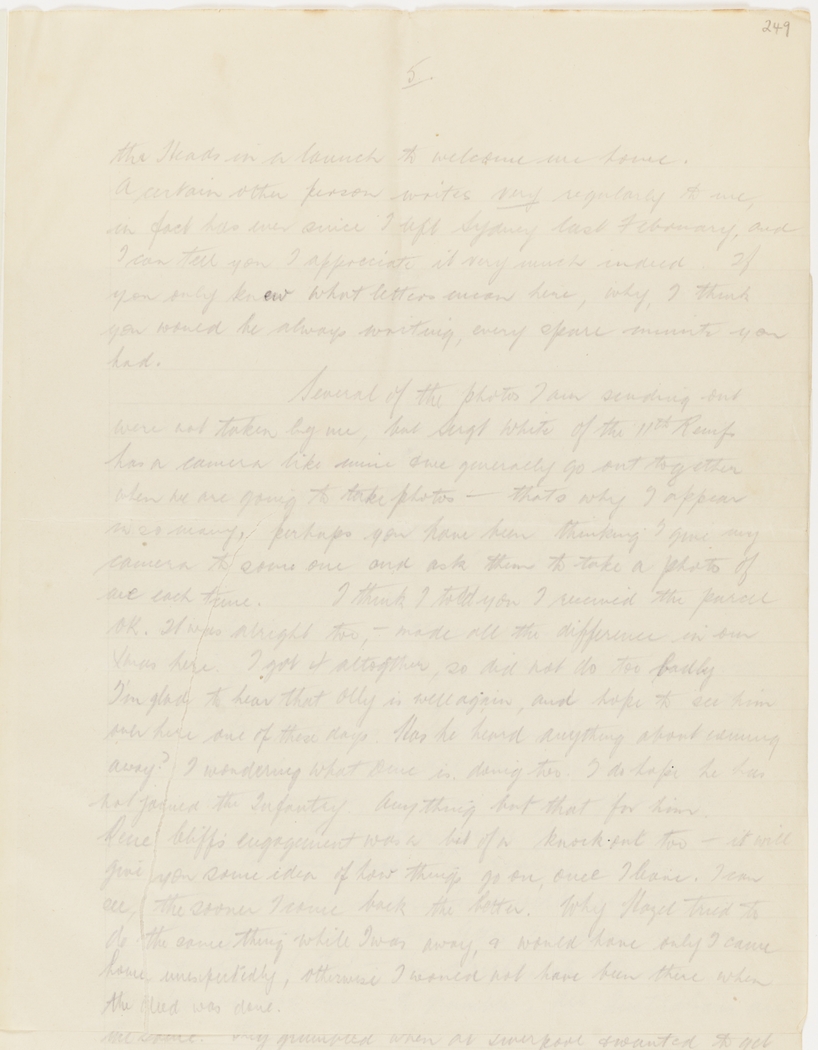 249
5.
the Heads in a launch to welcome me home.
A certain other person writes very regularly to me,
in fact has ever since I left Sydney last February, and
I can tell you I appreciate it very much indeed. If
you only knew what letters mean here, why, I think
you would be always writing, every spare minute you
had.
Several of the photos I am sending out
were not taken by me, but Sergt White of the 11th Reinfs
has a camera like mine & we generally go out together
when we are going to take photos — thats why I appear
in so many, perhaps you have been thinking I give my
camera to some one and ask them to take a photo of
me each time. I think I told you I received the parcel
OK. It was alright too, — made all the difference in our
Xmas here. I got 2 altogther, so did not do too badly
I'm glad to hear that Olly is well again, and hope to see him
over here one of these days. Has he heard anything about coming
away? I wondering what is doing too. I do hope he has
not joined the Infantry. Anything but that for him.
Cliff's engagement was a bit of a knock out too — it will
give you some idea of how things go on, once I leave. I can
see, the sooner I come back the better. Why Hazel tried to
do the same thing while I was away, & would have only I came
home unexpectedly, otherwise I would not have been there when
the deed was done.
the same. grumbled when at Liverpool & wanted to get